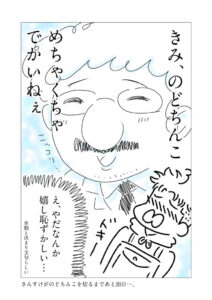 きみ、のどちんこ
めちゃくちゃ
でかいねぇ
ニコッ
え、やだなんか
嬉し恥ずかしい…
さんすけがのどちんこを切るまであと20日…。